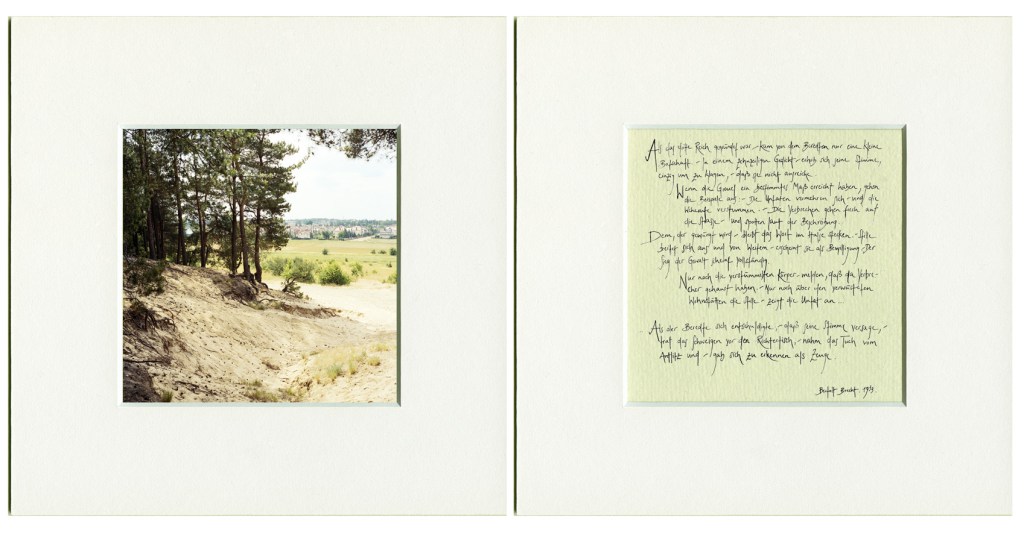 Als das dritte Reich gegründet war – kam von dem Beredten nur eine kleine
Botschaft – In einem zehnzeiligen Gedicht – erhob sich seine Stimme,
einzig um zu klagen, – daß sie nicht ausreiche
Wenn die Greuel ein bestimmtes Maß erreicht haben, gehen
die Beispiele aus – Die Untaten vermehren sich – und die
Weherufe verstummen – Die Verbrechen gehen frech auf
die Straße – und spotten laut der Beschreibung.
Dem, der gewürgt wird – bleibt das Wort im Halse stecken – Stille
breitet sich aus und von Weitem – erscheint sie als Der
Sieg der Gewalt scheint vollständig.
Nur noch die verstümmelten Körper – melden, daß da Verbre-
cher gehaust haben – Nur noch über den verwüsteten
Wohnstätten die Stille – zeigt die Untat an ..
Als der Beredte sich entschuldigte, – daß seine Stimme versage, –
trat das Schweigen vor den Richtertisch, – nahm das Tuch vom
Antlitz und – gab sich zu erkennen als Zeuge
Bertolt Brecht